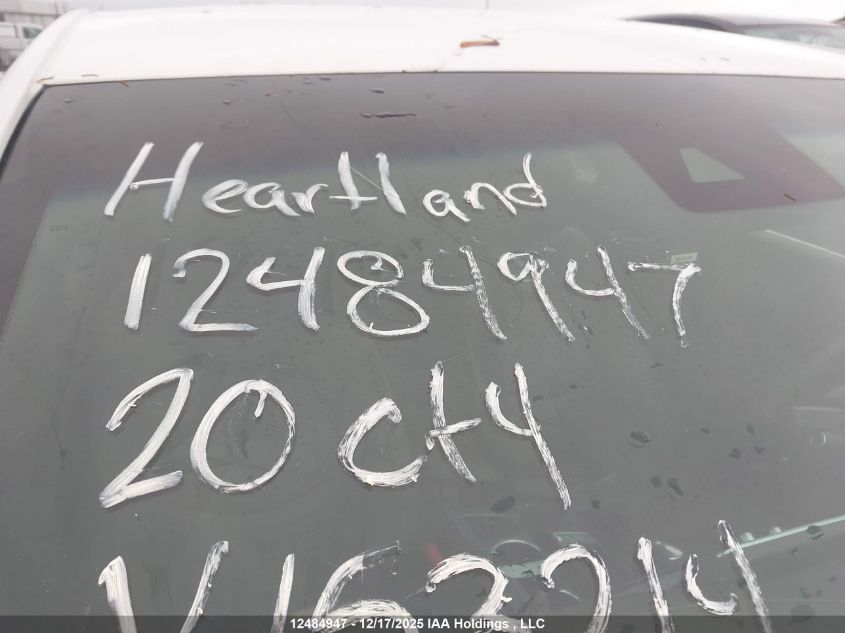 Heartland
12484947
20 ct4
12484947 - 12/17/2025 IAA Holdings , LLC